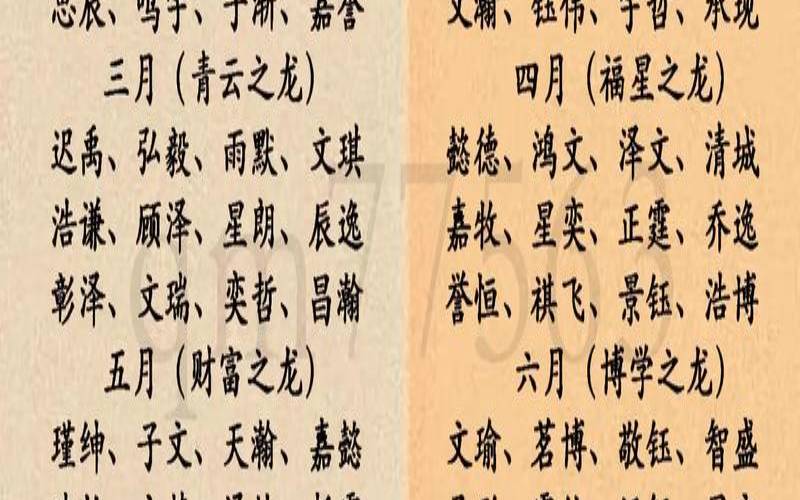 思辰、鸣宇、子渐、嘉誉
三月（青云之龙）
迟禹、弘毅、雨默、文琪
浩谦、顾泽、星朗、辰逸
彰泽、文瑞、奕哲、昌瀚
五月（财富之龙）
瑾绅、子文、天瀚、嘉懿
文瀚、钰伟、宇哲、承现
四月（福星之龙）
懿德、鸿文、泽文、清城
嘉牧、星奕、正霆、乔逸
誉恒、祺飞、景钰、浩博
六月（博学之龙）
文瑜、茗博、敬钰、智盛
qm77563